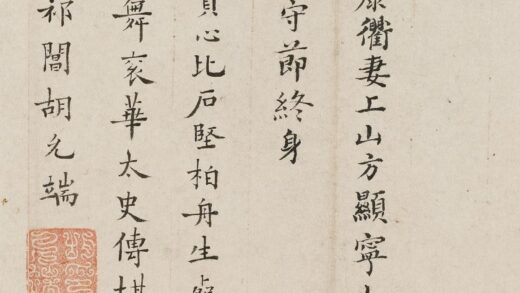 康衢妻工山方顯寧
守節終身
貞心比石堅柏舟生
舞袞華太史傳
祁閶胡允端